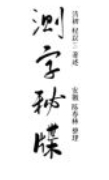 清初 程省 著述
測字秘牒
安徽 陈春林 整理